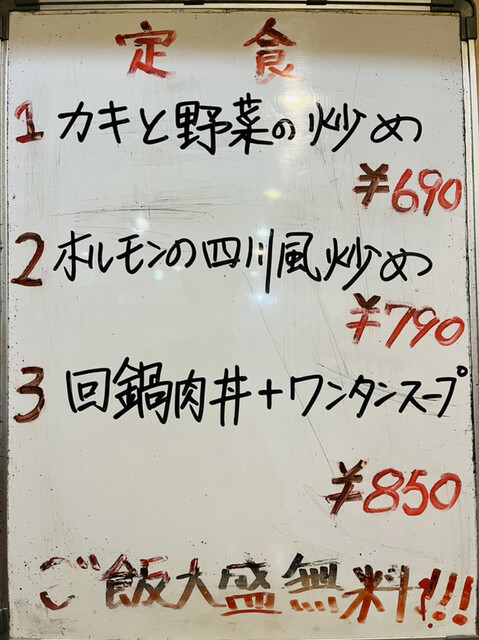 定食
1 カキと野菜の炒め
¥690
2 ホルモンの四川風炒め
¥790
3 回鍋肉丼+ワンタンスープ
¥850
ご飯大盛無料!!!